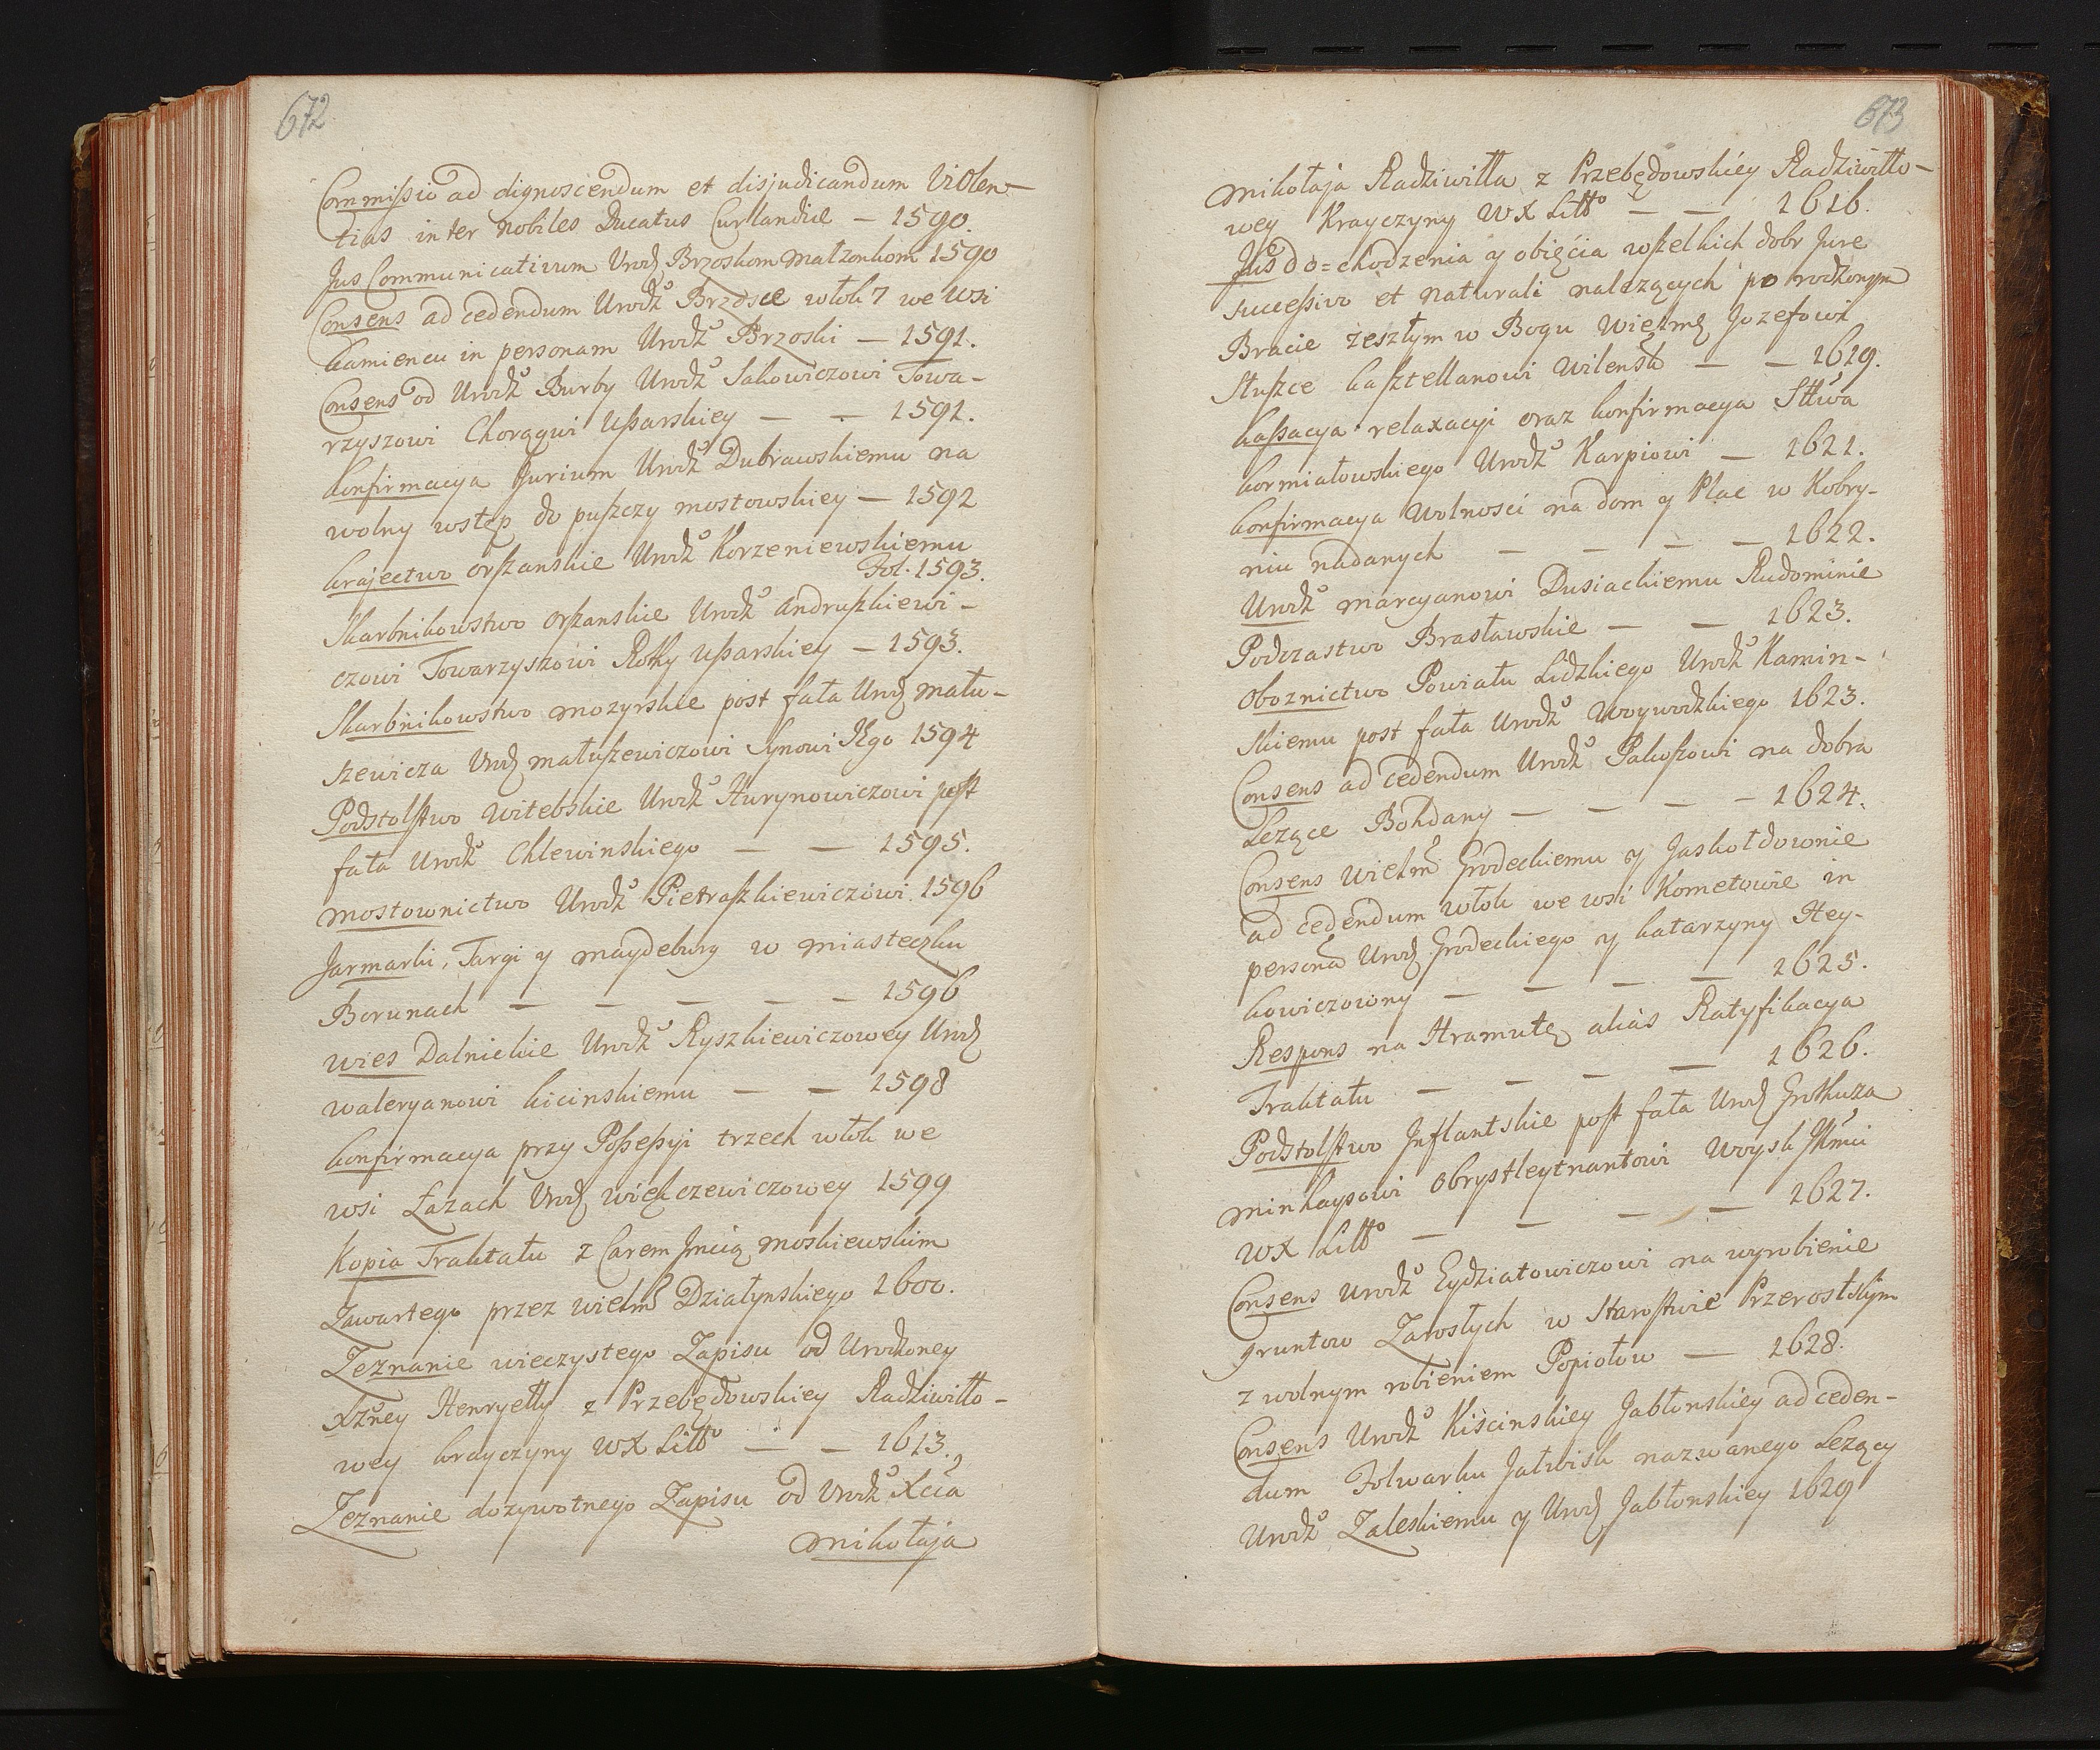 672
Commissio ad dignoscendum et disjudicandum Violen-
tias inter Nobiles Ducatus Curlandiæ — 1590.
Jus Communicativum Urodź Brzoskom Małżonkom 1590
Consens ad cedendum Urodź Brzosce włok 7 we Wsi
Kamiencu in personam Urodź Brzoski — 1591.
Consens od Urodź Burby Urodź Sakowiczowi Towa-
rzyszowi Chorągwi Ussarskiey — — 1591.
Konfirmacya Jurium Urodź Dubrawskiemu na
wolny wstęp do puszczy mostowskiey — 1592
Krajectwo orszanskie Urodź Korzeniewskiemu
Fol. 1593.
Skarbnikowstwo orszanskie Urodź Andruszkiewi-
czowi Towarzyszowi Rotty Ussarskiey — 1593.
Skarbnikowstwo mozyrskie post fata Urodź Matu-
szewicza Urodź Matuszewiczowi Synowi Jego 1594
Podstolstwo Witebskie Urodź Hurynowiczowi post
fata Urodź Chlewinskiego — — 1595.
Mostownictwo Urodź Pietraszkiewiczowi. 1596
Jarmarki, Targi y maydeburg w miasteczku
Borunach — — — — — 1596
Wies Dalniekie Urodź Ryszkiewiczowey Urodź
Waleryanowi Kicinskiemu — — 1598
Konfirmacya przy Possessyi trzech włok we
wsi Łazach Urodź Więkczewiczowey 1599
Kopia Traktatu z Carem Jmcią moskiewskim
Zawartego przez Wielmż Działynskiego 1600.
Zeznanie wieczystego Zapisu od Urodzoney
Xżney Henryetty z Przebędowskiey Radziwiłło-
wey Krayczyny WX Litto — — 1613.
Zeznanie dozywotnego Zapisu od Urodź Xcia
Mikołaja
673
Mikołaja Radziwiłła z Przebędowskiey Radziwiłło-
wey Krayczyny WX Litto — — 1616.
Jus do=chodzenia y obięcia wszelkich dobr Jure
successivo et naturali nalezących po rodzonym
Bracie zeszłym w Bogu Wielmż Jozefowi
Słuszce Kasztellanowi Wilensk — — 1619.
Kassacya relaxacyi oraz Konfirmacya Sttwa
Kormiałowskiego Urodź Karpiowi — 1621.
Konfirmacya Wolnosci na dom y Plac w Kobry-
niu nadanych — — — — 1622.
Urodź Marcyanowi Dusiackiemu Rudominie
Podczastwo Brasławskie — — 1623.
Oboznictwo Powiatu Lidzkiego Urodź Kamin-
skiemu post fata Urodź Woywodzkiego 1623.
Consens ad cedendum Urodź Pakoszowi na dobra
Lezące Bohdany — — — — 1624.
Consens Wielmż Grodeckiemu y Jaskołdownie
ad cedendum włok we wsi Kometowie in
persona Urodź Grodeckiego y Katarzyny Hey-
kowiczowny — — — — 1625.
Respons na Hramutę alias Ratyfikacya
Traktatu — — — — 1626.
Podstolstwo Inflantskie post fata Urodź Grothuza
Minkaysowi Obrystleytnantowi Woysk JKmci
WX Litto — — — — 1627.
Consens Urodź Eydziatowiczowi na wyrobienie
gruntow Zarosłych w Starostwie Przerosłskim
z wolnym robieniem Popiołow — 1628.
Consens Urodź Kiścinskiey Jabłonskiey ad ceden-
dum Folwarku Jatwisk nazwanego Lezący
Urodź Zaleskiemu y Urodź Jabłonskiey 1629